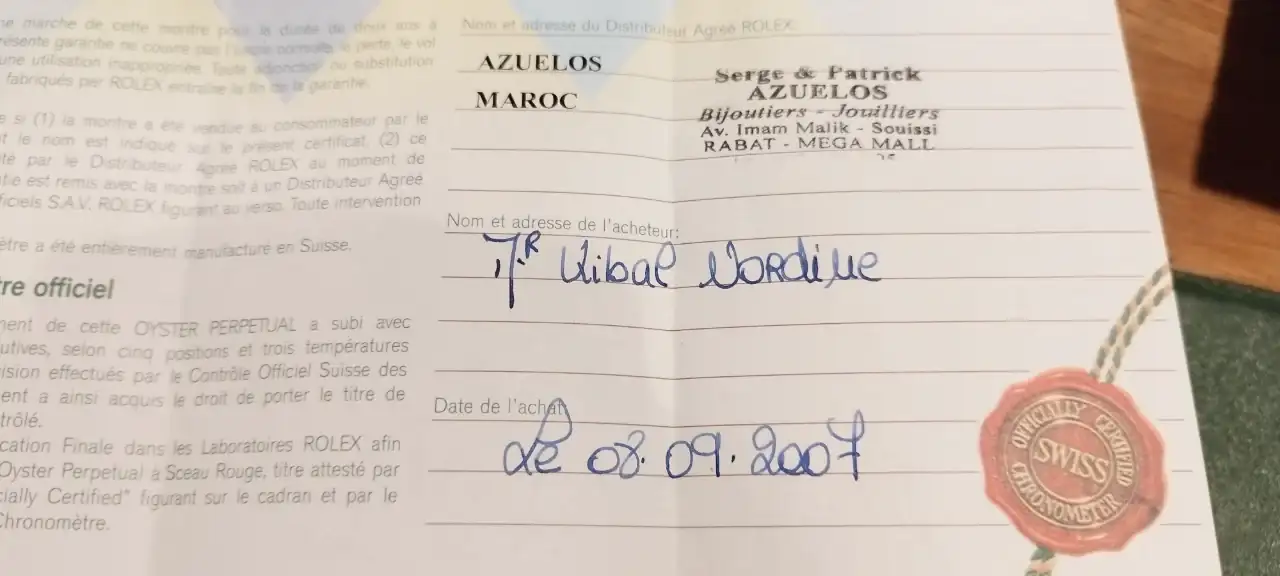 ne marche de cette montre pour la durée de deux ans à
résente garantie ne couvre pas l'usure normale, la perte, le vol
une utilisation inappropriée. Toute adjonction ou substitution
fabriqués par ROLEX entraîne la fin de la garantie.
e si (1) la montre a été vendue au consommateur par le
t le nom est indiqué sur le présent certificat, (2) ce
té par le Distributeur Agréé ROLEX au moment de
tie est remis avec la montre soit à un Distributeur Agréé
ficiels S.A.V. ROLEX figurant au verso. Toute intervention
ètre a été entièrement manufacturé en Suisse.
re officiel
ment de cette OYSTER PERPETUAL a subi avec
utives, selon cinq positions et trois températures
ision effectués par le Contrôle Officiel Suisse des
ent a ainsi acquis le droit de porter le titre de
trôlé.
cation Finale dans les Laboratoires ROLEX afin
Oyster Perpetual à Sceau Rouge, titre attesté par
cially Certified" figurant sur le cadran et par le
Chronomètre.
Nom et adresse du Distributeur Agréé ROLEX:
AZUELOS
MAROC
Serge & Patrick
AZUELOS
Bijoutiers - Jouilliers
Av. Imam Malik - Souissi
RABAT - MEGA MALL
Nom et adresse de l'acheteur:
Kibal Nordine
Date de l'achat
Le 08.09.2007
OFFICIALLY CERTIFIED
SWISS
CHRONOMETER